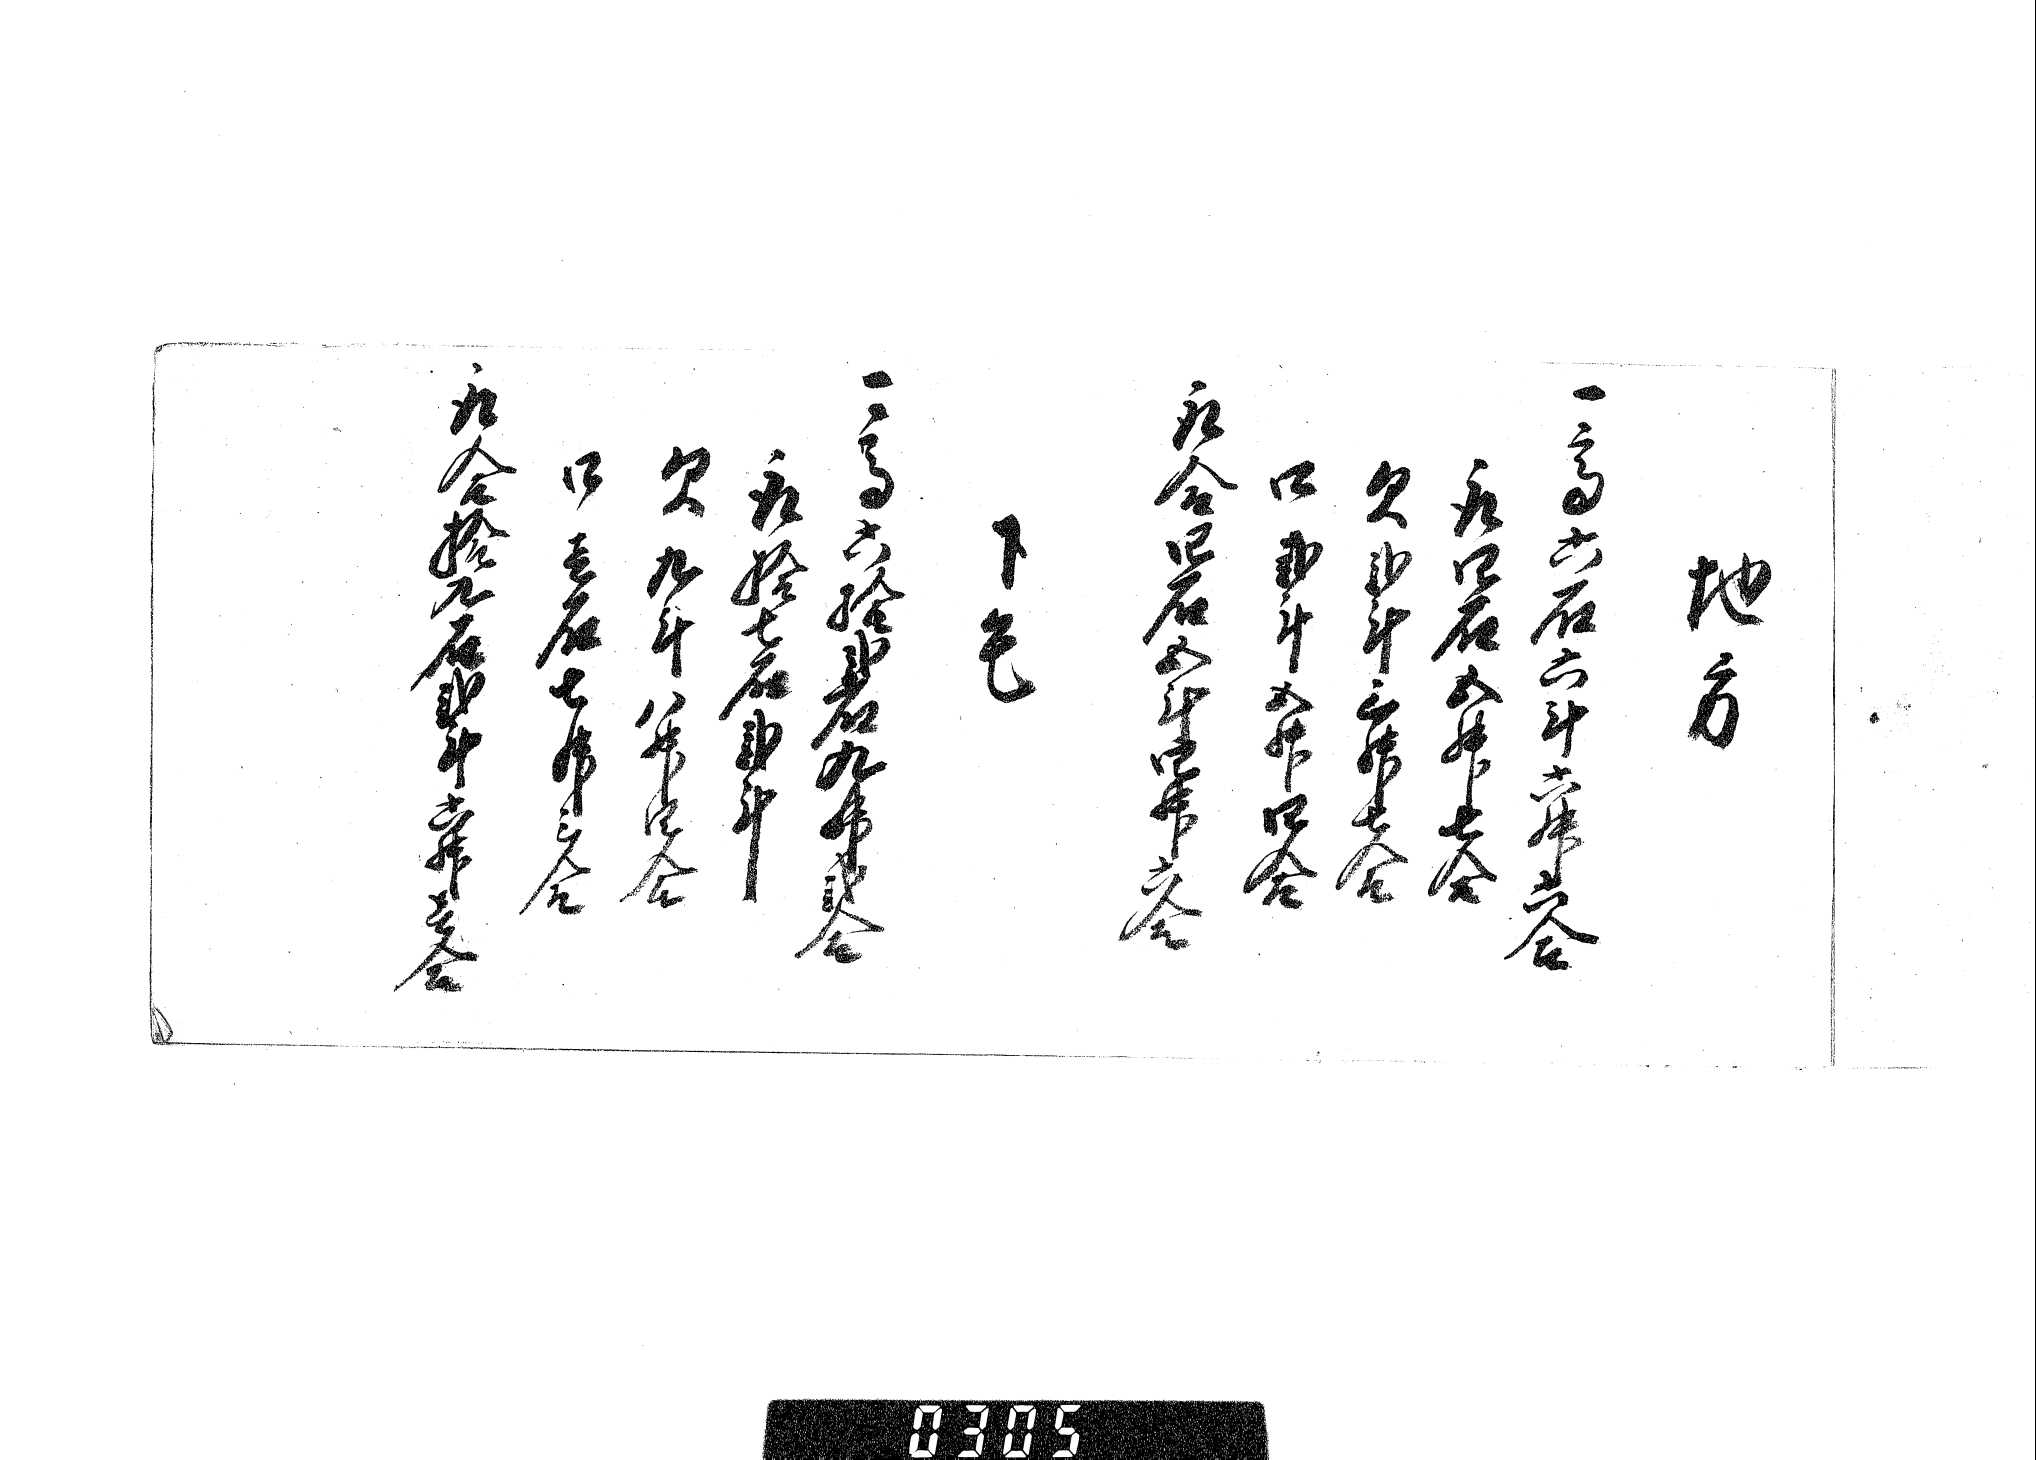 地方
一高六石六斗六升六合
取四石五升七合
欠弐斗三升七合
口弐斗五升四合
取合四石五斗四升六合
下毛
一高六拾弐石九升弐合
取拾七石弐斗
欠九斗八升四合
口壱石七升三合
取合拾九石弐斗六升壱合
0305